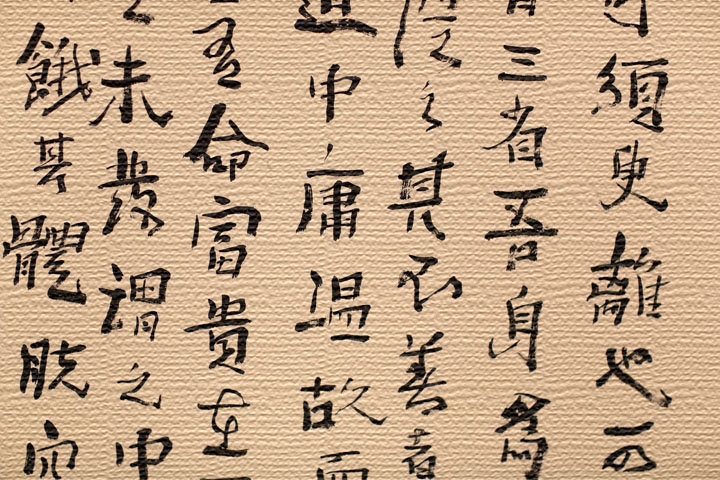 須臾離也可
三省吾身為
從之其不善者
道中庸溫故而
有命富貴在
之未發謂之中
餓其體膚空